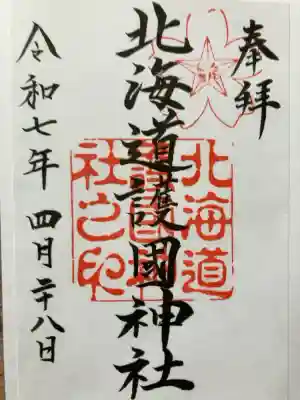 奉拝
北海道護國神社
北海道
護國神
社之印
令和七年 四月二十八日